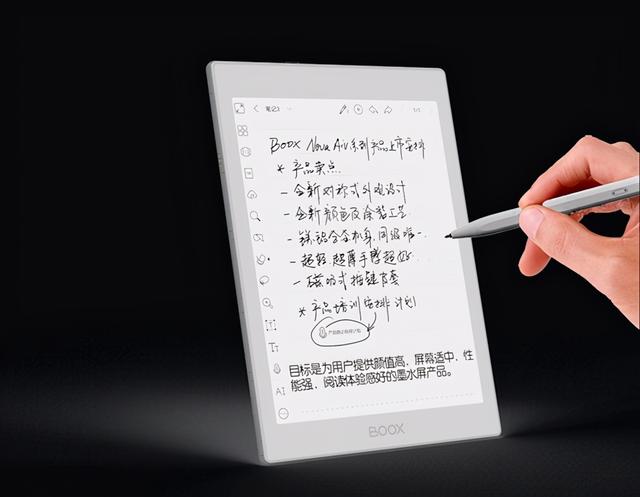 笔记3
1/1
BOOX Nova Air系列产品上市安排
* 产品卖点
- 全新对称式外观设计
- 全新颜色及涂装工艺
- 镁铝合金机身,同级唯一.
- 超轻.超薄手感超好
- 磁吸式按键皮套
* 产品培训安排计划
目标是为用户提供颜值高,屏幕适中,性
能强,阅读体验感好的墨水屏产品。
TT
AI
BOOX